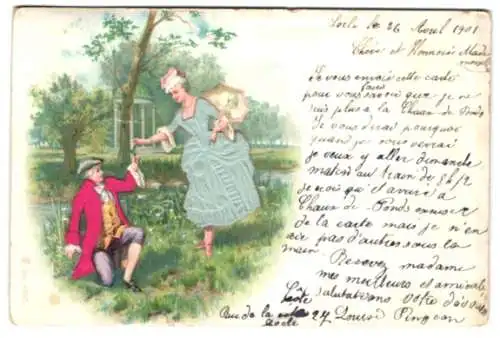 Locle le 26 Avril 1901
Chère et Honnorée Mada
Je vous envoie cette carte
faire
pour vous savoir que je ne
suis plus a la Chaux de Fonds
Je vous dirai pourquoi
quand je vous verai
je veux y aller dimanche
matin au train de 8 h 1/2
je crois qu'il arrive a
Chaux de Fonds
de la carte mais je n'en
ai pas d'autres sous la
main. Recevez madame
mes meilleurs et
salutations votre
Louise Pingeon
Rue de la Côte 27
Locle